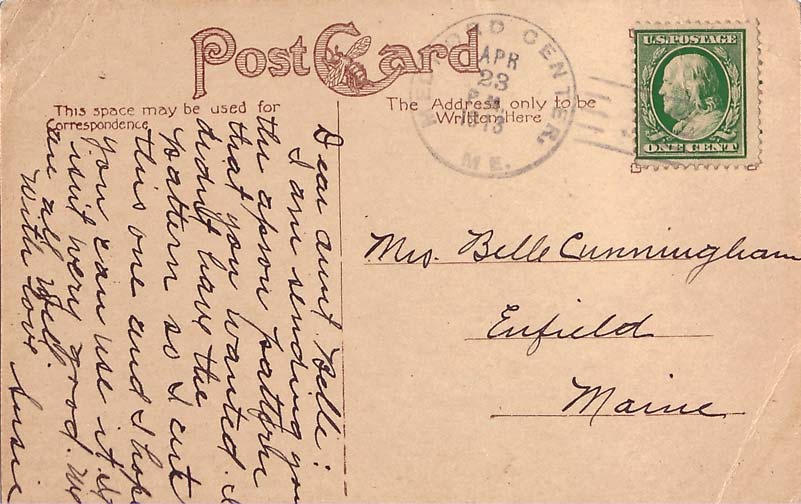 Post Card
This space may be used for
Correspondence
The Address only to be
Written Here
CENTER,
APR
23
P.M.
1913
ME.
U.S. POSTAGE
ONE CENT
Dear aunt Belle:
I am sending you
the apron pattern
that you wanted. I
didn't have the
pattern so I cut
this one and I hope
you can use it if
isn't very good. We
are all well.
With love
Susie
Mrs. Belle Cunningham
Enfield
Maine